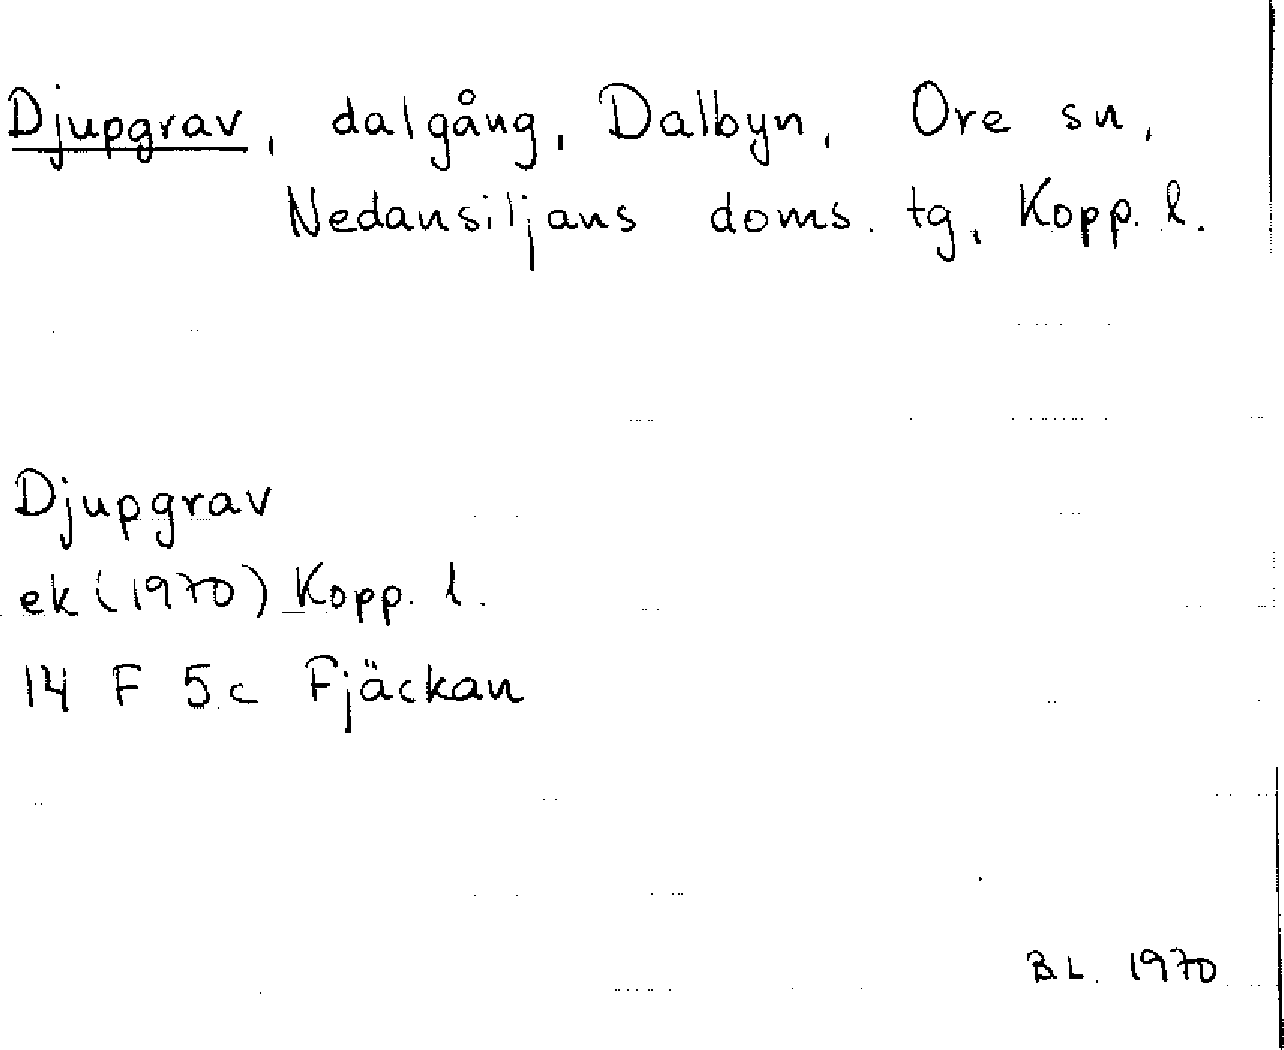 Djupgrav, dalgång, Dalbyn, Ore sn,
Nedansiljans doms. tg, Kopp. l.
Djupgrav
ek (1970) Kopp. l.
14 F 5 c Fjäckan
BL. 1970